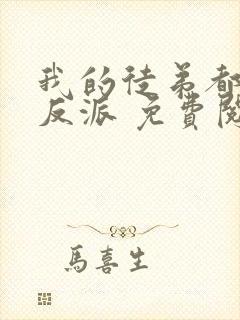 我的徒弟都
反派 免費閱
馬喜生